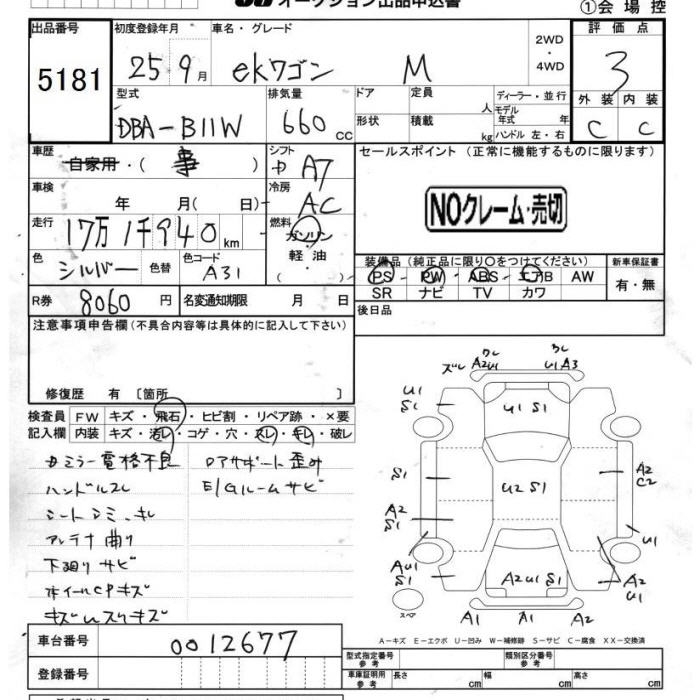 オークション出品申込書
①会場控
出品番号 初度登録年月 車名・グレード 2WD・4WD 評価点
5181 25 9月 ekワゴン M 3
型式 排気量 ドア 定員 人 ディーラー・並行 外装 内装
DBA-B11W 660cc 形状 積載 kg モデル年式 年 ハンドル 左・右 C C
車歴 自家用・( 事 ) シフト A7 セールスポイント (正常に機能するものに限ります)
車検 年 月 ( 日) 冷房 AC NOクレーム・売切
走行 17万1千940km 燃料 ガソリン 軽・油 ( )
装備品 (純正品に限り○をつけてください) 新車保証書
色 シルバー 色替 色コード A31 PS PW ABS エアB AW 有・無
SR ナビ TV カワ
R券 8060円 名変通知期限 月 日 後日品
注意事項申告欄 (不具合内容等は具体的に記入して下さい)
修復歴 有 〔箇所 〕
検査員 FW キズ・飛石・ヒビ割・リペア跡・×要
記入欄 内装 キズ・汚レ・コゲ・穴・スレ・キレ・破レ
ミラー電格不良 Dアサポート歪み
ハンドルスレ E/Gルームサビ
シートシミ、キレ
アンテナ曲り
下廻りサビ
ホイールCPキズ
キズUスリキズ
ズレ A2U1 クレ クレ U1 A3
U1 S1 U1 S1
S1 U2 S1 A2 C2
A2 S1
AU1 S1 A2 U1 S1 U1
A2 U1
スペア A1 A1 A2
A-キズ E-エクボ U-凹み W-補修跡 S-サビ C-腐食 XX-交換済
車台番号 0012677
型式指定番号 参考 類別区分番号 参考
登録番号 車庫証明 参考 長さ cm 幅 cm 高さ cm